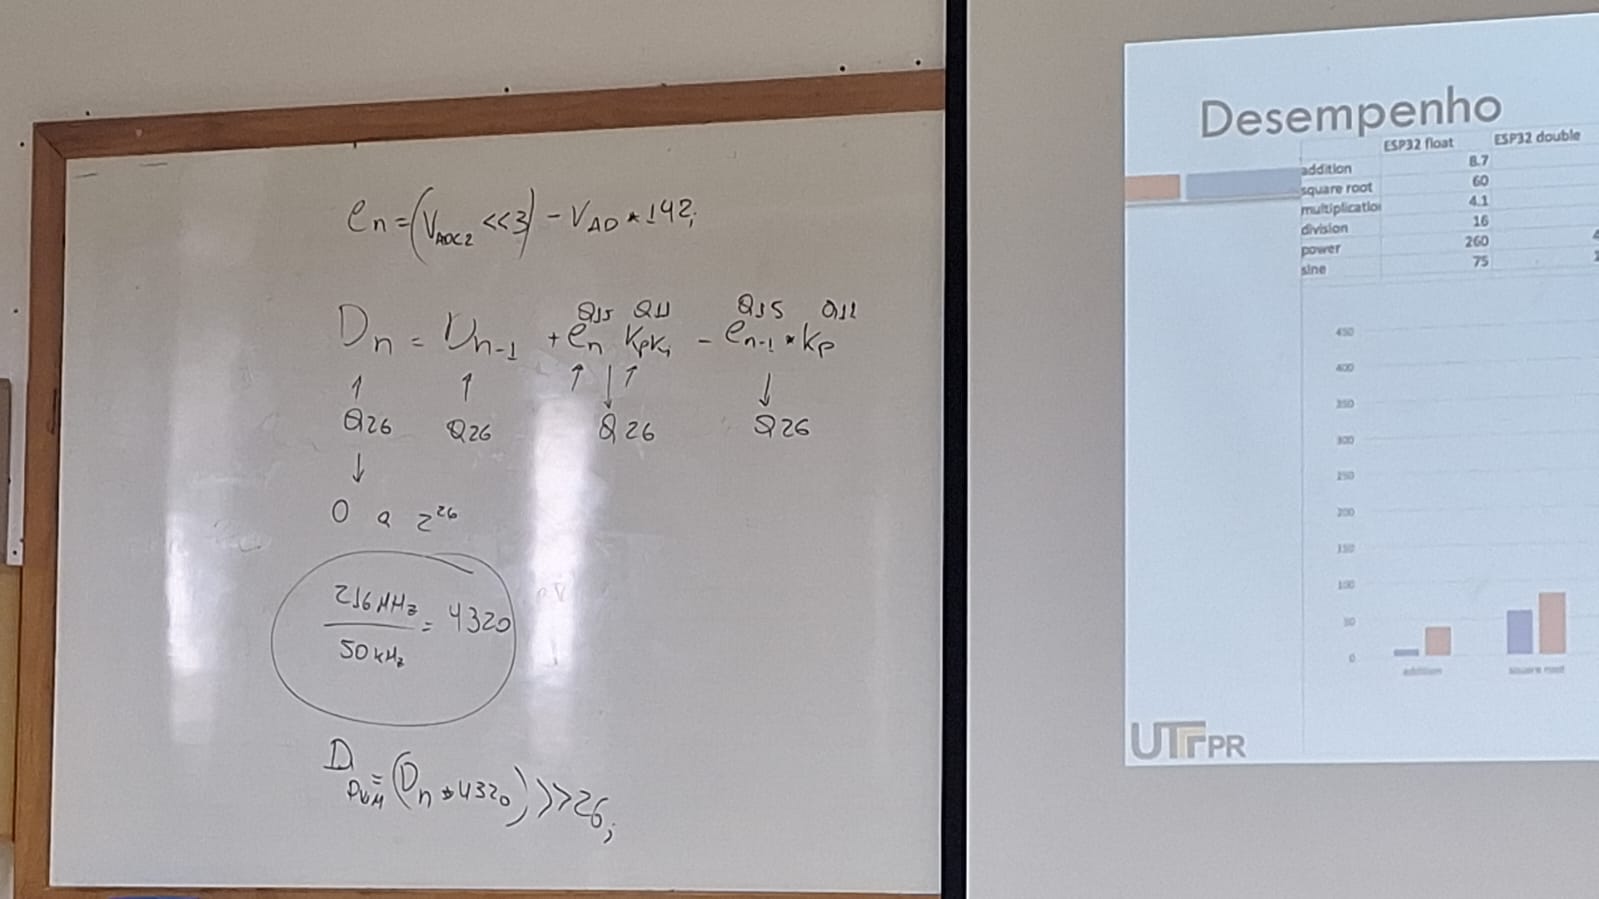 en = (VADC2 <<3) - VAD * 142;
Q15 Q11 Q15 Q11
Dn = Dn-1 + en KpKi - en-1 * Kp
↑ ↑ ↑ ↓ ↑ ↓
Q26 Q26 Q26 Q26
↓
0 a 2^26
216MHz / 50kHz = 4320
DPWM = (Dn * 4320) >>26;
Desempenho
ESP32 float ESP32 double
addition 8.7
square root 60
multiplicatio 4.1
division 16
power 260
sine 75
450
400
350
300
250
200
150
100
50
0
addition square root
UTFPR